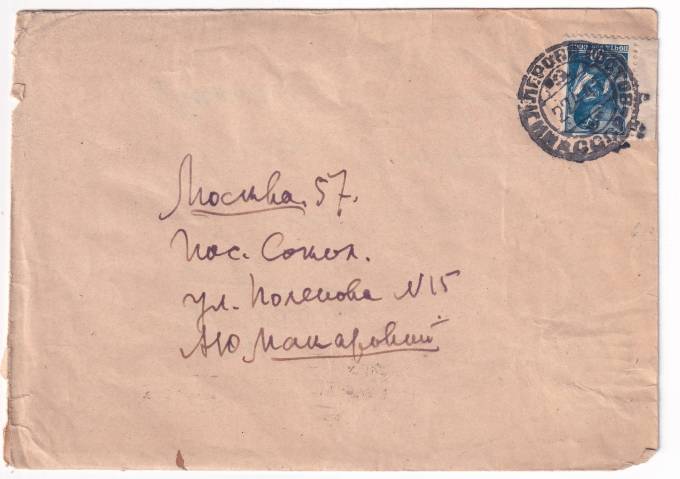 Москва. 57.
Пос. Сокол.
ул. Поленова N 15
АЮ Макаровкий